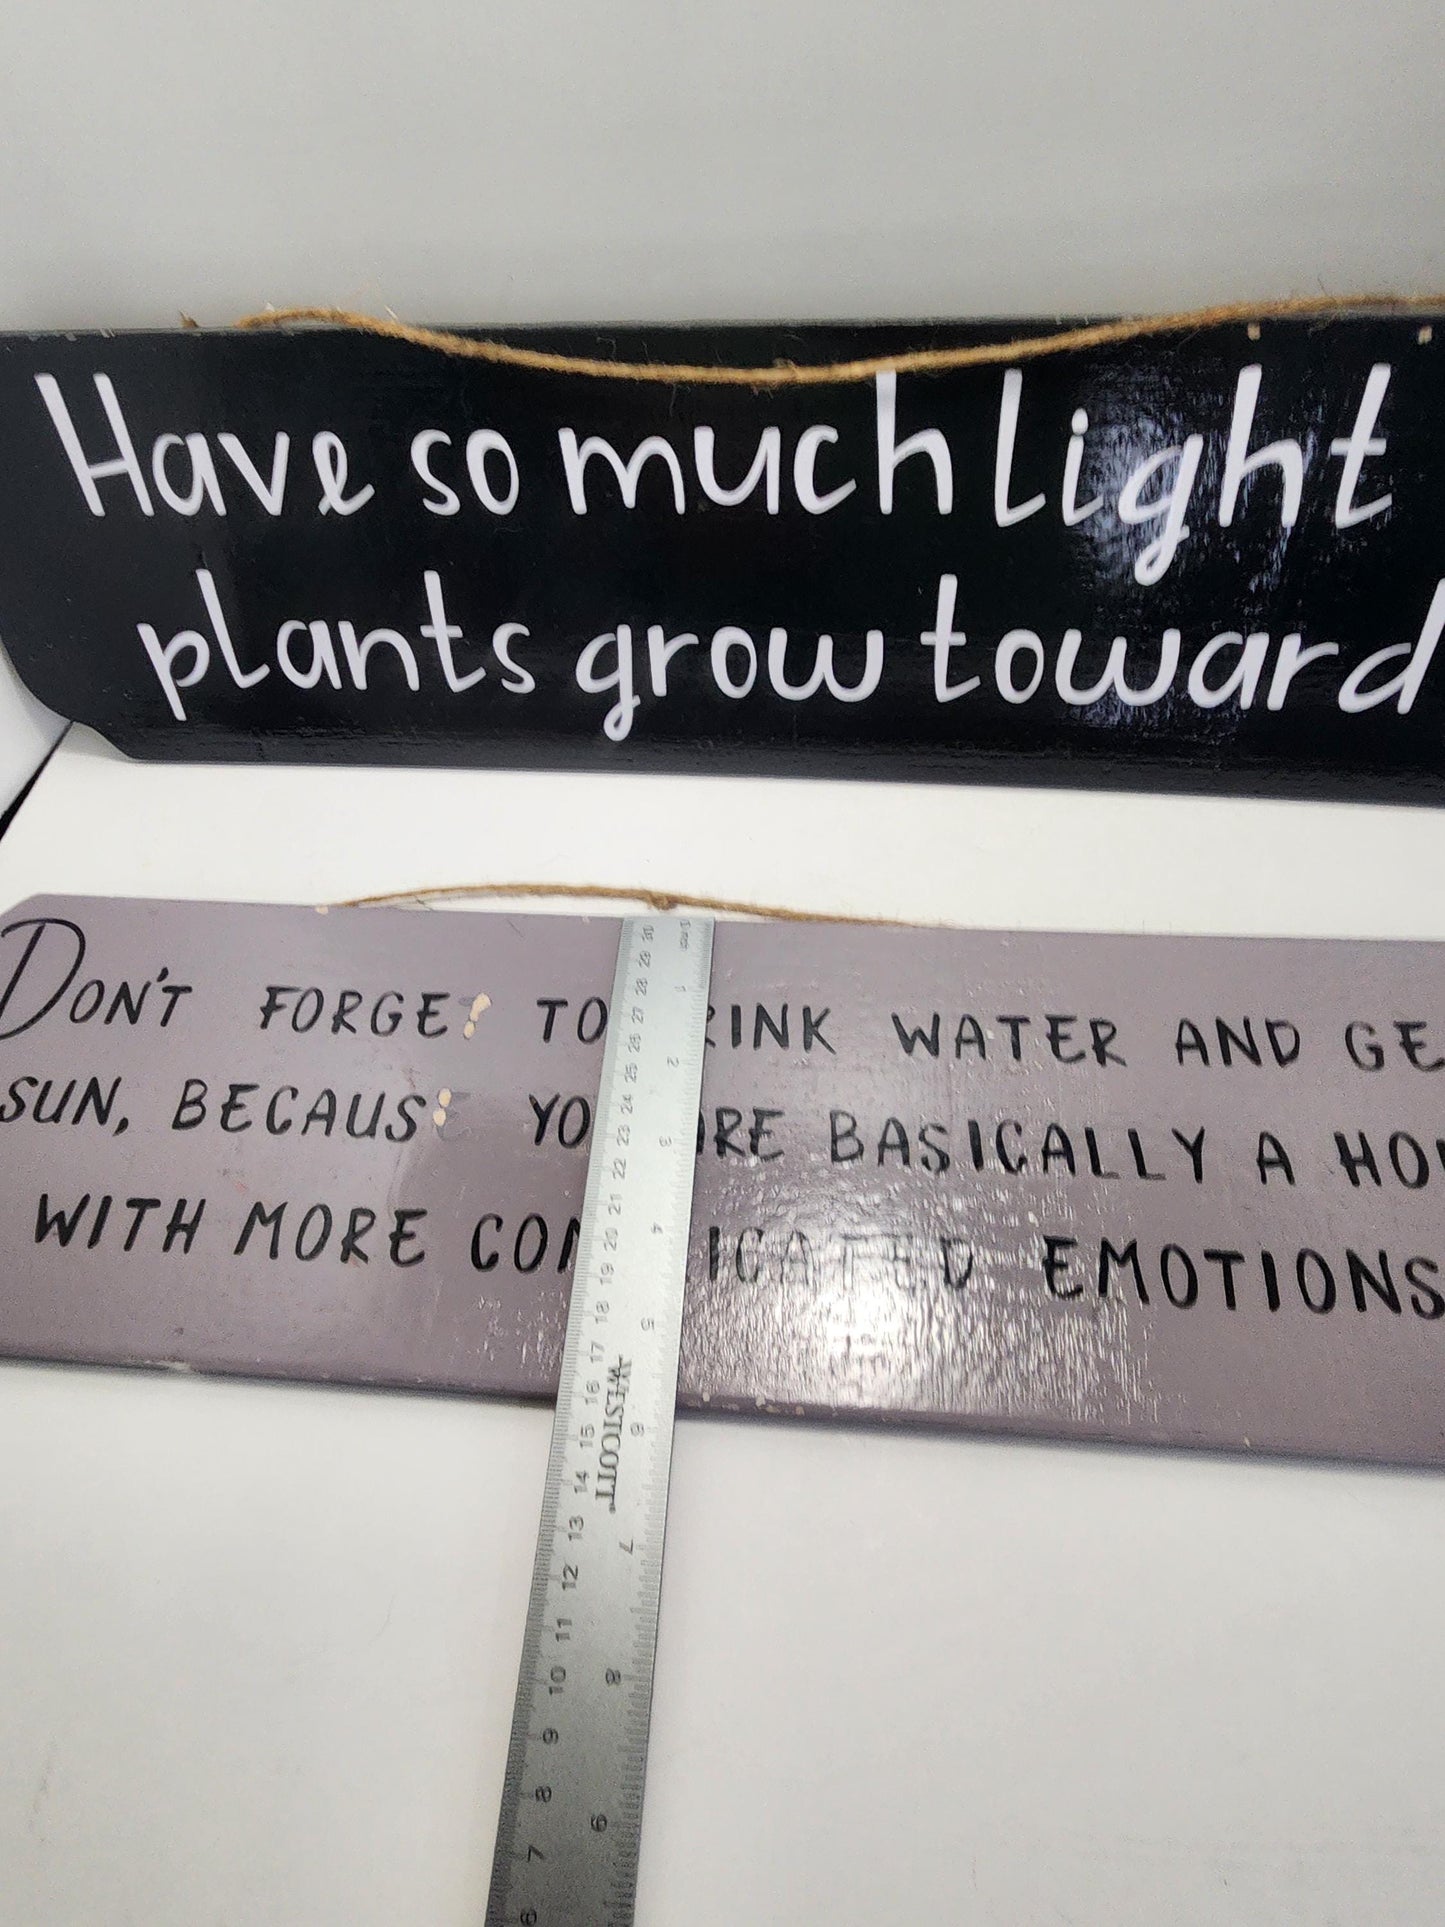 Have so much light
plants grow toward
DON'T FORGE TO RINK WATER AND GE
SUN, BECAUS YO ARE BASICALLY A HO
WITH MORE CO ICATED EMOTIONS
1 INCH
1 2 3 4 5 6 7 8 9
30 29 28 27 26 25 24 23 22 21 20 19 18 17 16 15 14 13 12 11 10 9 8 7 6
WESTCOTT